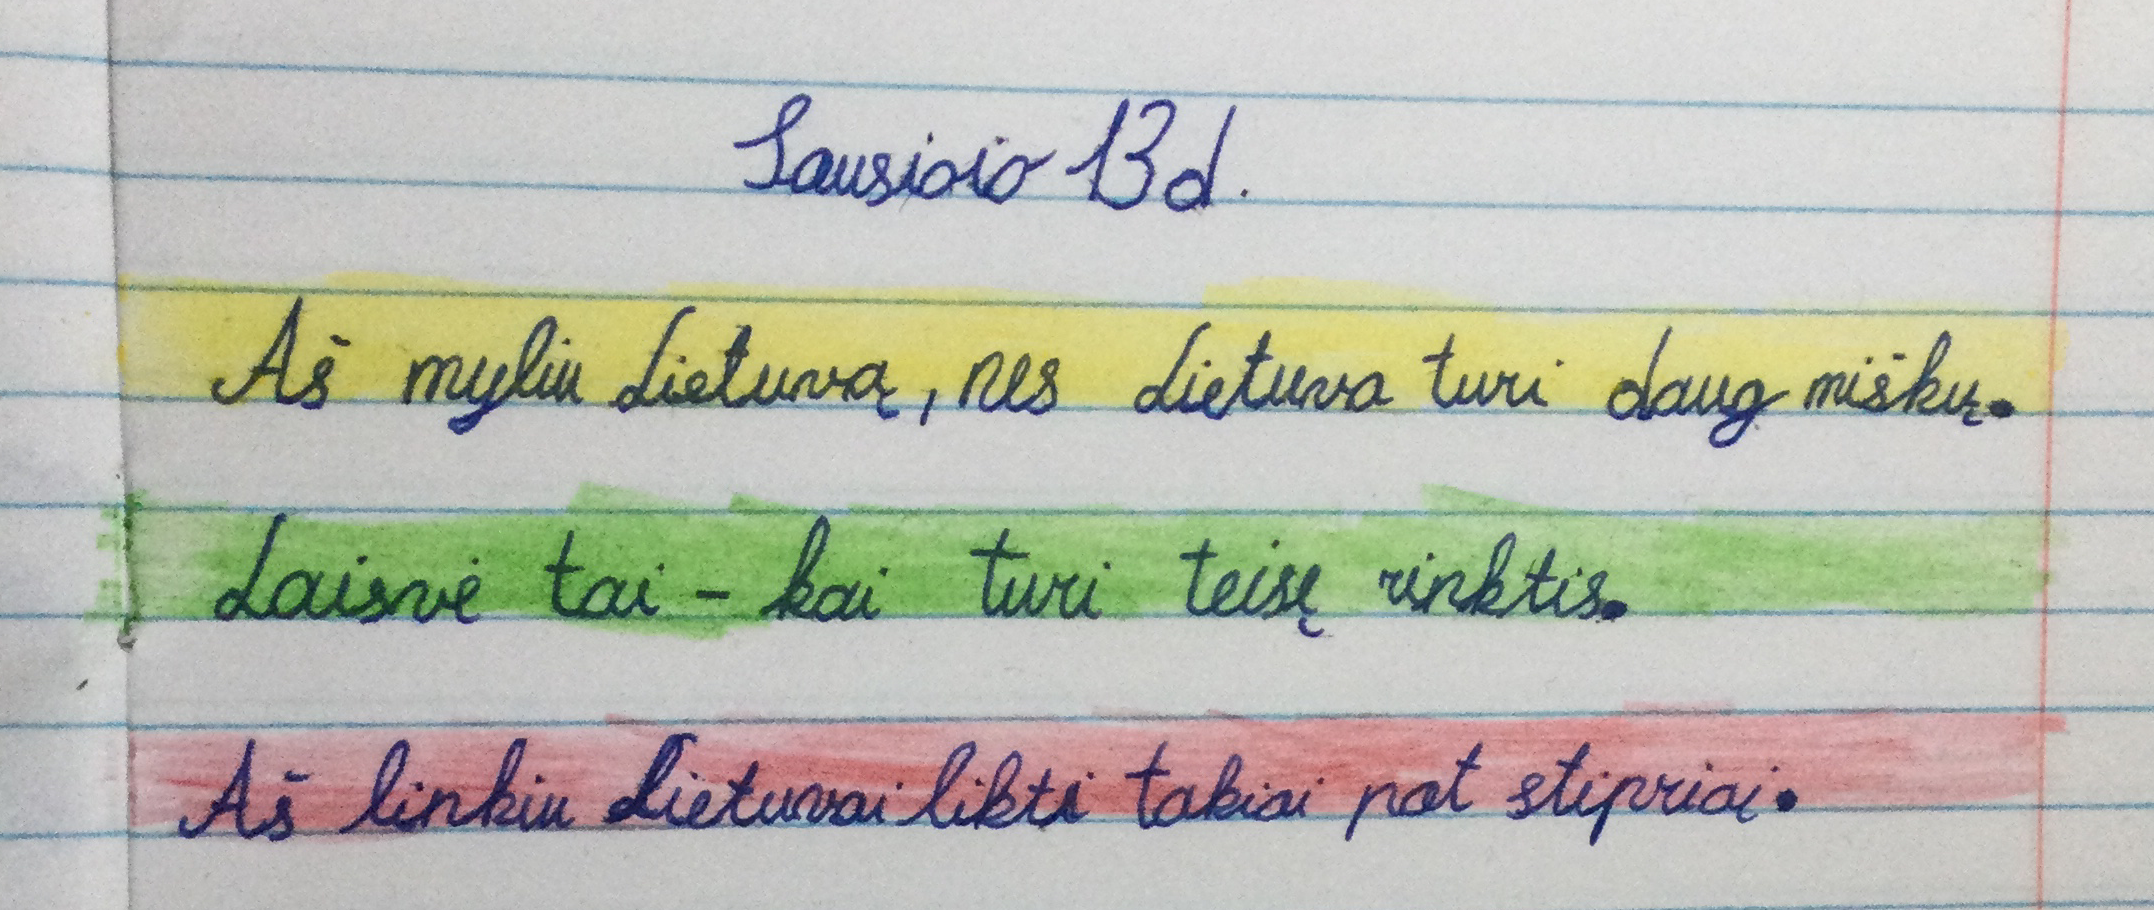 Sausioio 13 d.
Aš myliu Lietuvą, nes Lietuva turi daug miškų.
Laisvė tai - kai turi teisę rinktis.
Aš linkiu Lietuvai likti takiai pat stipriai.